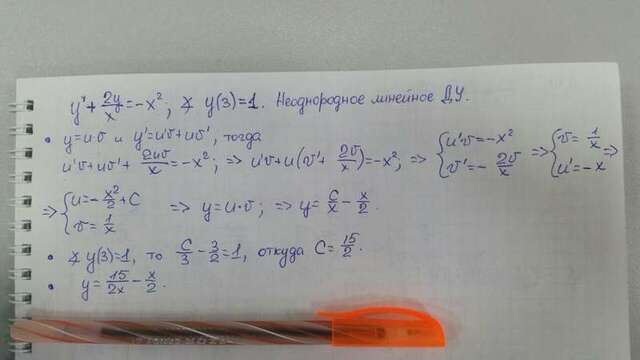 y' + 2y/x = -x²; ∢ y(3)=1. Неоднородное линейное ДУ.
• y=u·v и y'=u'v+uv', тогда
u'v+uv'+ 2uv/x = -x²; => u'v+u(v'+ 2v/x)=-x²; => {u'v=-x² v'=- 2v/x => {v= 1/x u'=-x =>
=> {u=- x²/2 +C v= 1/x => y=u·v; => y= C/x - x/2.
• ∢ y(3)=1, то C/3 - 3/2 =1, откуда C= 15/2.
• y= 15/2x - x/2.